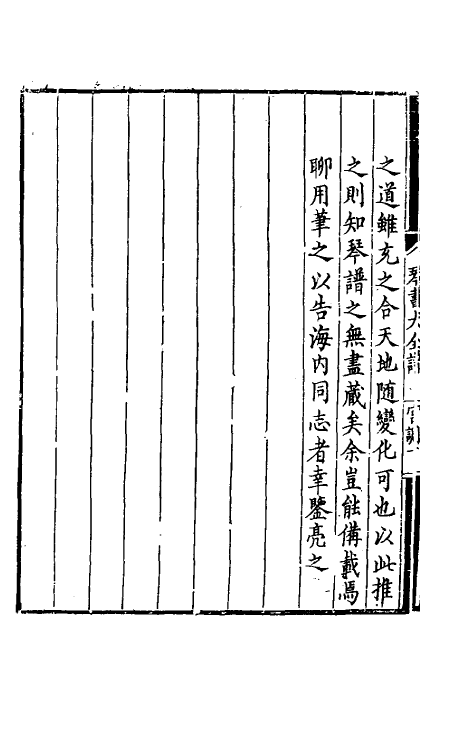 之道雖充之合天地隨變化可也以此推
之則知琴譜之無盡藏矣余豈能備載焉
聊用筆之以告海内同志者幸鑒亮之
琴書大全譜 宮調